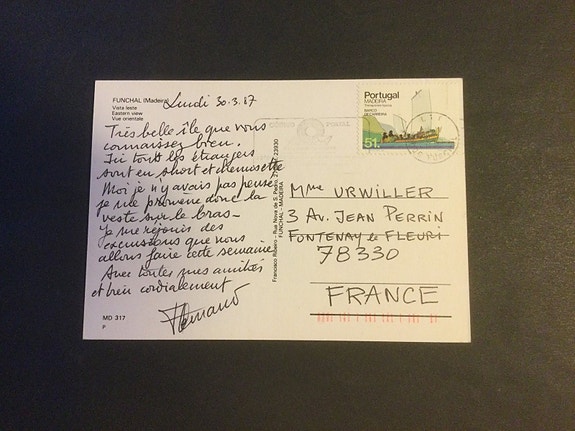 FUNCHAL (Madeira)
Vista leste
Eastern view
Vue orientale
Lundi 30.3.87
Très belle île que vous
connaissez bien.
Ici tous les étrangers
sont en short et chemisette
Moi je n'y avais pas pensé,
je me promène donc la
veste sur le bras-
Je me réjouis des
excursions que nous
allons faire cette semaine
Avec toutes mes amitiés
et bien cordialement
MD 317
P
Francisco Ribeiro - Rua Nova de S. Pedro, 23930
FUNCHAL - MADEIRA
Portugal
MADEIRA
BARCO
51.
Mme URWILLER
3 AV. JEAN PERRIN
FONTENAY le FLEURI
78330
FRANCE